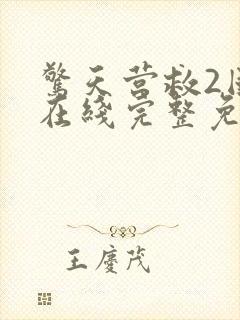 驚天营救2
在綫完整免
王慶茂